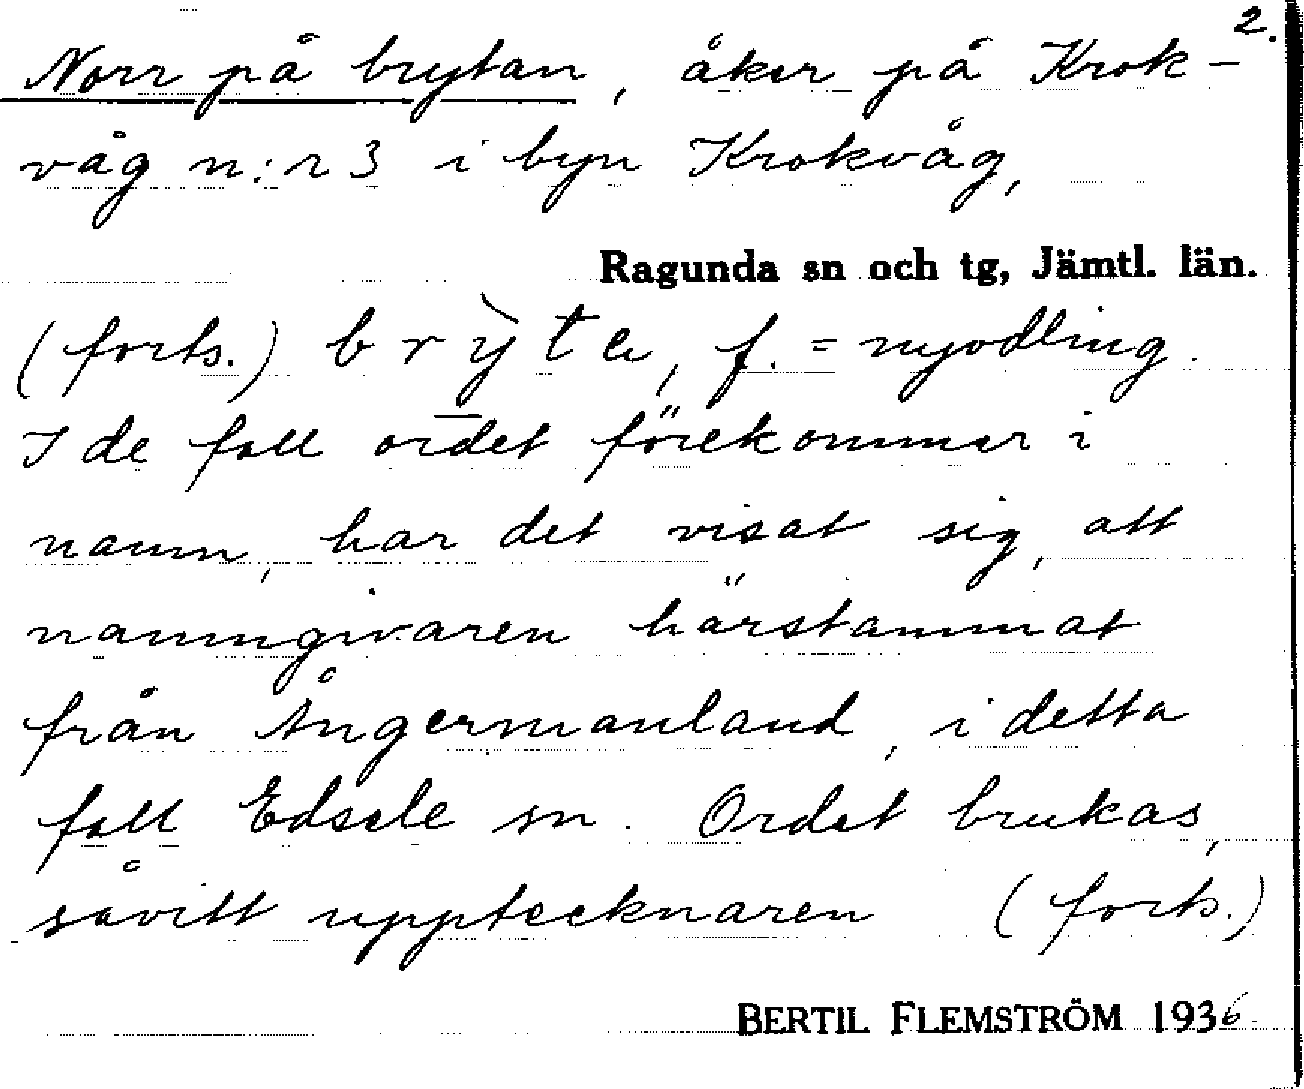 2.
Norr på brytan, åker på Krok-
våg n:r 3 i byn Krokvåg,
Ragunda sn och tg, Jämtl. län.
(forts.) br&#x1EF3;te, f. = nyodling.
I de fall ordet förekommer i
namn, har det visat sig, att
namngivaren härstammat
från Ångermanland, i detta
fall Edsele sn. Ordet brukas,
såvitt upptecknaren (forts.)
BERTIL FLEMSTRÖM 1936